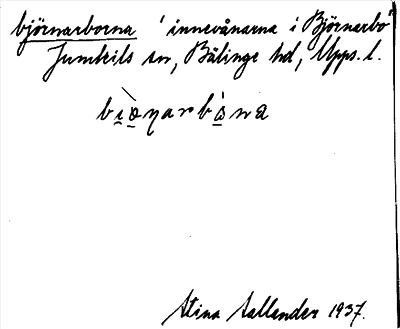 björnarborna 'innevånarna i Björnarbo'
Jumkils sn, Bälinge hd, Upps. l.
Stina Sallander 1937.